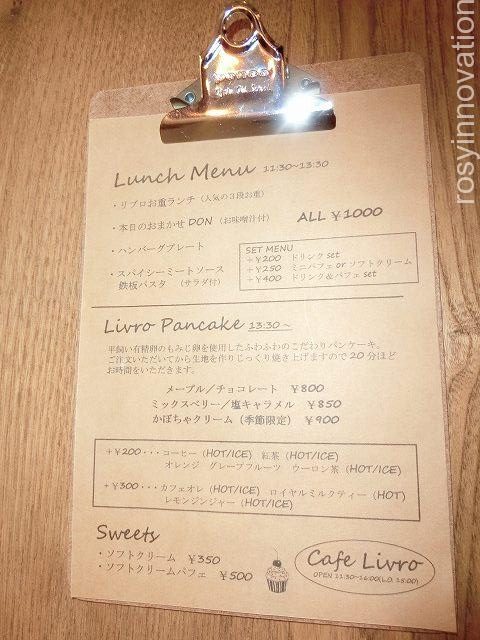 rosyinnovation
Lunch Menu 11:30~13:30
・リブロお重ランチ（人気の３段お重）
・本日のおまかせ DON （お味噌汁付）
ALL ¥1000
・ハンバーグプレート
・スパイシーミートソース
鉄板パスタ （サラダ付）
SET MENU
+¥200 ドリンク set
+¥250 ミニパフェ or ソフトクリーム
+¥400 ドリンク&パフェ set
Livro Pancake 13:30~
平飼い有精卵のもみじ卵を使用したふわふわのこだわりパンケーキ。
ご注文いただいてから生地を作りじっくり焼き上げますので 20 分ほど
お時間をいただきます。
メープル／チョコレート ¥800
ミックスベリー／塩キャラメル ¥850
かぼちゃクリーム（季節限定） ¥900
+¥200・・・コーヒー（HOT/ICE） 紅茶（HOT/ICE）
オレンジ グレープフルーツ ウーロン茶（HOT/ICE）
+¥300・・・カフェオレ（HOT/ICE） ロイヤルミルクティー（HOT）
レモンジンジャー（HOT/ICE）
Sweets
・ソフトクリーム ¥350
・ソフトクリームパフェ ¥500
Cafe Livro
OPEN 11:30~16:00(L.O. 15:00)